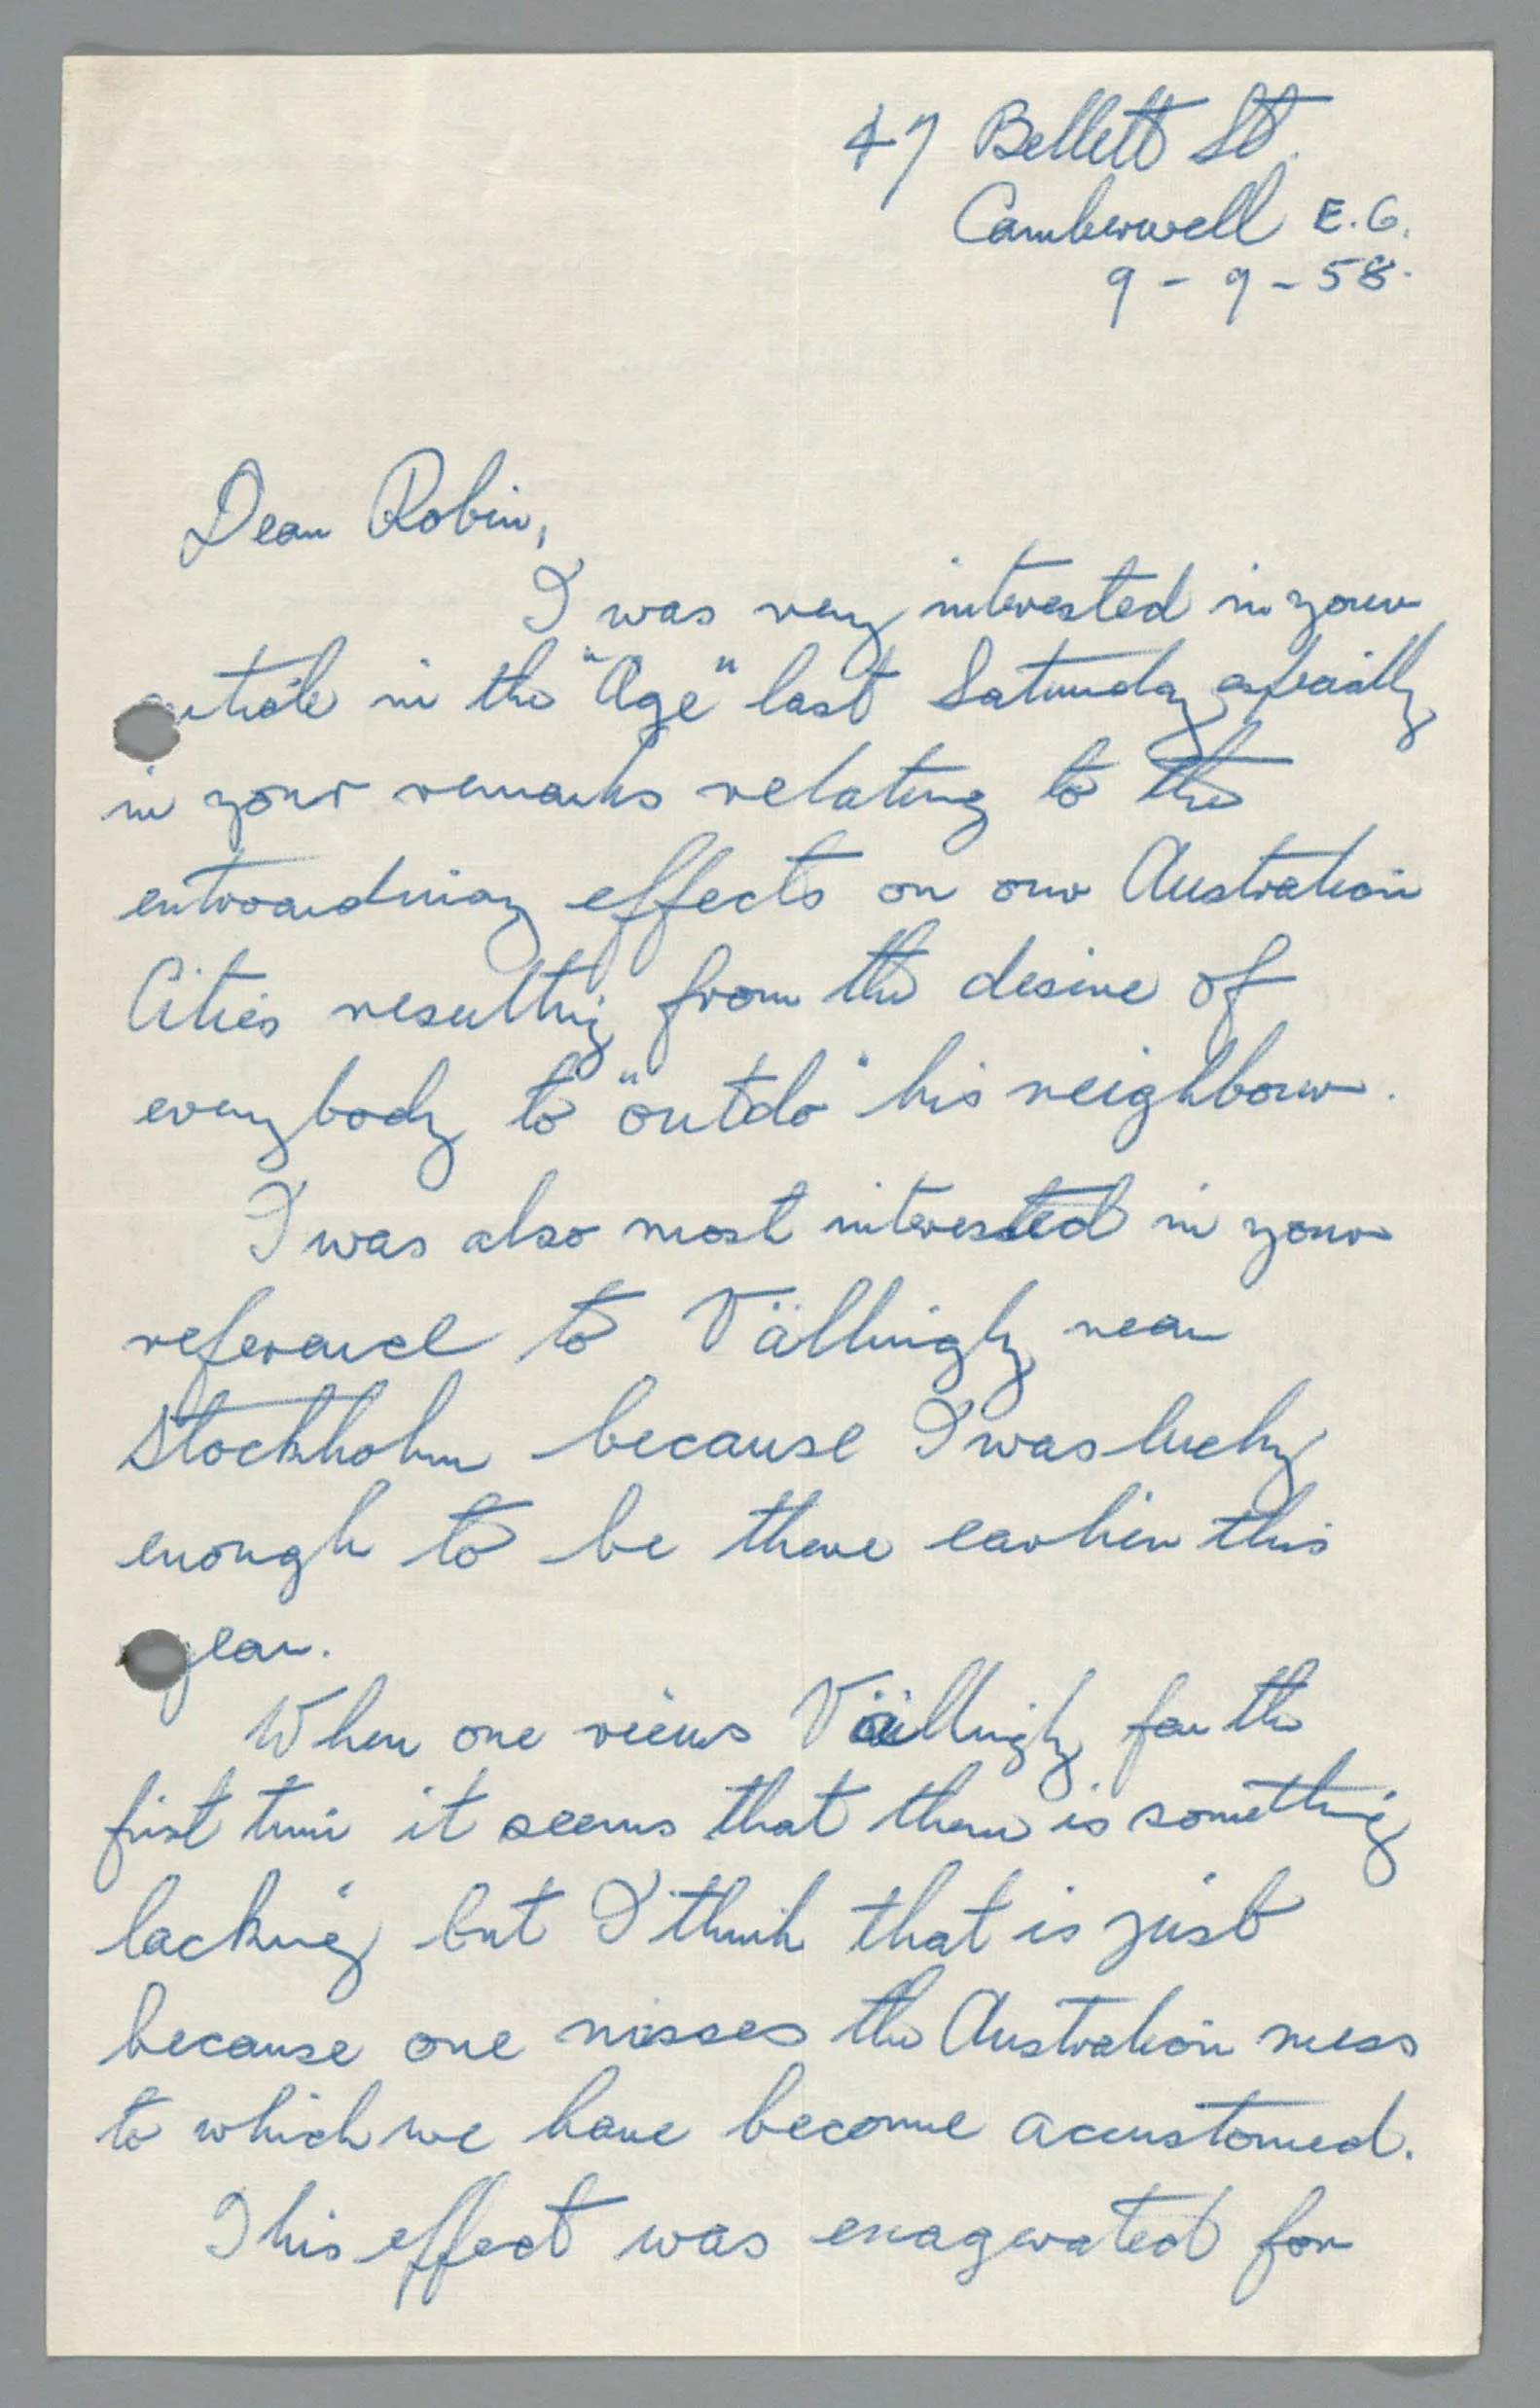 47 Bellett St.
Camberwell E.6.
9 - 9 - 58.
Dear Robin,
I was very interested in your
article in the "Age" last Saturday especially
in your remarks relating to the
extraordinary effects on our Australian
Cities resulting from the desire of
everybody to "outdo" his neighbour.
I was also most interested in your
reference to Vällingby near
Stockholm because I was lucky
enough to be there earlier this
year.
When one views Vällingby for the
first time it seems that there is something
lacking but I think that is just
because one misses the Australian mess
to which we have become accustomed.
This effect was exagerated for